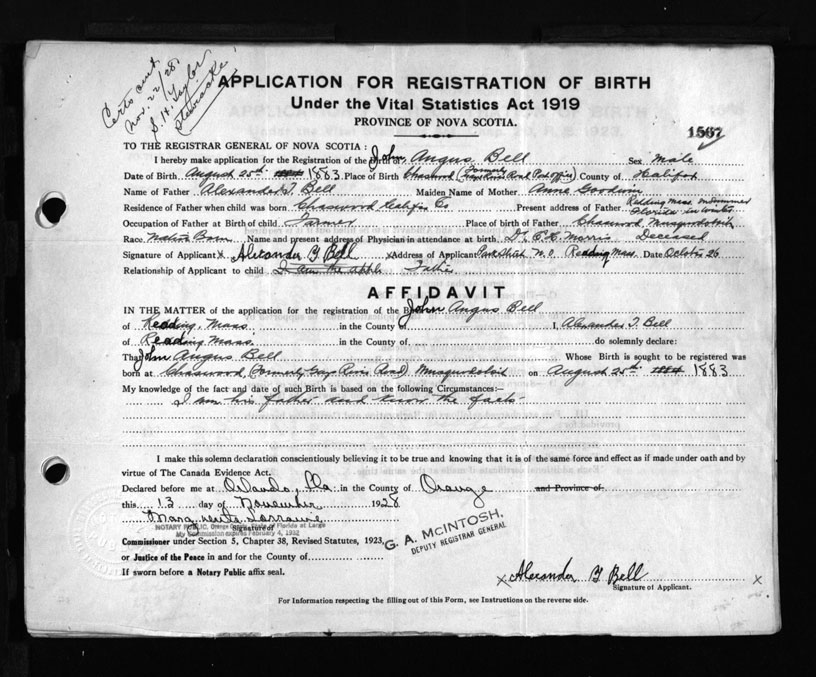 Certs sent
Nov. 22/28
S. H. Taylor
Stewiacke
APPLICATION FOR REGISTRATION OF BIRTH
Under the Vital Statistics Act 1919
PROVINCE OF NOVA SCOTIA.
1567
TO THE REGISTRAR GENERAL OF NOVA SCOTIA:
I hereby make application for the Registration of the John Angus Bell Sex Male
Date of Birth August 25th 1883 Place of Birth Chaswood (Formerly Gays River Road County of Halifax
Name of Father Alexander T. Bell Maiden Name of Mother Anne Goodwin
Residence of Father when child was born Chaswood Halifax Co Present address of Father Redding Mass. in summer Florida in winter
Occupation of Father at Birth of child Farmer Place of birth of Father Chaswood Musquodoboit
Race Native Born Name and present address of Physician in attendance at birth Dr. Morris Deceased
Signature of Applicant x Alexander T Bell x Address of Applicant Reading Mass. Date October 26
Relationship of Applicant to child I am the appli Father
AFFIDAVIT
IN THE MATTER of the application for the registration of the B John Angus Bell
of Reading, Mass in the County of I, Alexander T. Bell
of Reading Mass. in the County of do solemnly declare:
That John Angus Bell Whose Birth is sought to be registered was
born at Chaswood, Formerly Gays River Road, Musquodoboit on August 25th 1883
My knowledge of the fact and date of such Birth is based on the following Circumstances:—
I am his father and know the facts
I make this solemn declaration conscientiously believing it to be true and knowing that it is of the same force and effect as if made under oath and by
virtue of The Canada Evidence Act.
Declared before me at Orlando, Fla in the County of Orange and Province of
this 13 day of November 1928
Marguerite Lorraine
Signature of
NOTARY PUBLIC, Orange County, State of Florida at Large
My Commission expires February 4, 1932
Commissioner under Section 5, Chapter 38, Revised Statutes, 1923,
G. A. McINTOSH,
DEPUTY REGISTRAR GENERAL
or Justice of the Peace in and for the County of
If sworn before a Notary Public affix seal.
x Alexander T Bell x
Signature of Applicant.
For Information respecting the filling out of this Form, see Instructions on the reverse side.